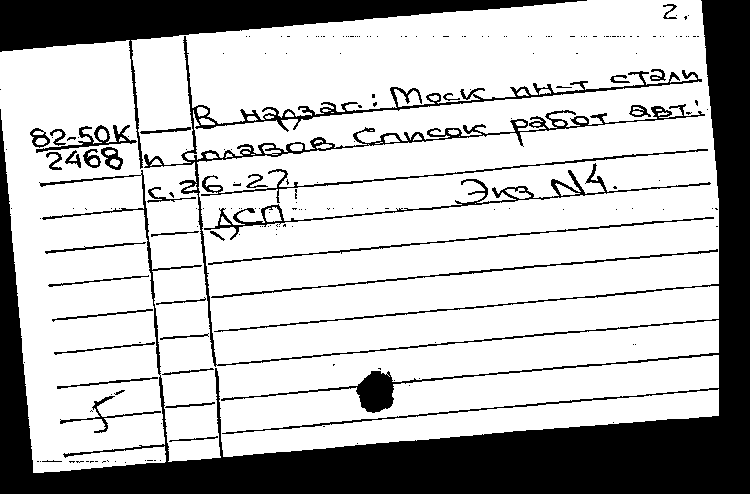 2.
В надзаг.: Моск. ин-т стали
82-50К
2468
и сплавов. Список работ авт.:
с. 26-27.
Экз N4.
ДСП.
5